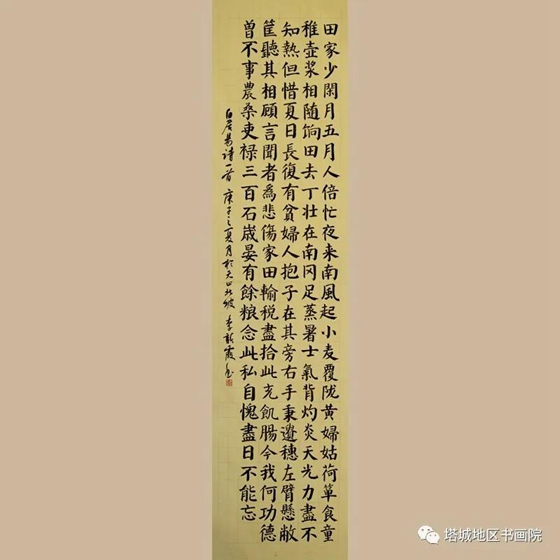 田家少閑月五月人倍忙夜来南風起小麦覆陇黄婦姑荷箪食童
稚壶浆相随饷田去丁壮在南冈足蒸暑土氣背灼炎天光力盡不
知熱但惜夏日長復有貧婦人抱子在其旁右手秉遺穗左臂懸敝
筐聽其相顧言聞者為悲傷家田輸税盡拾此充飢腸今我何功德
曾不事農桑吏禄三百石歲晏有餘粮念此私自愧盡日不能忘
白居易诗一首 庚子之夏月於天山北坡 李霞
塔城地区书画院